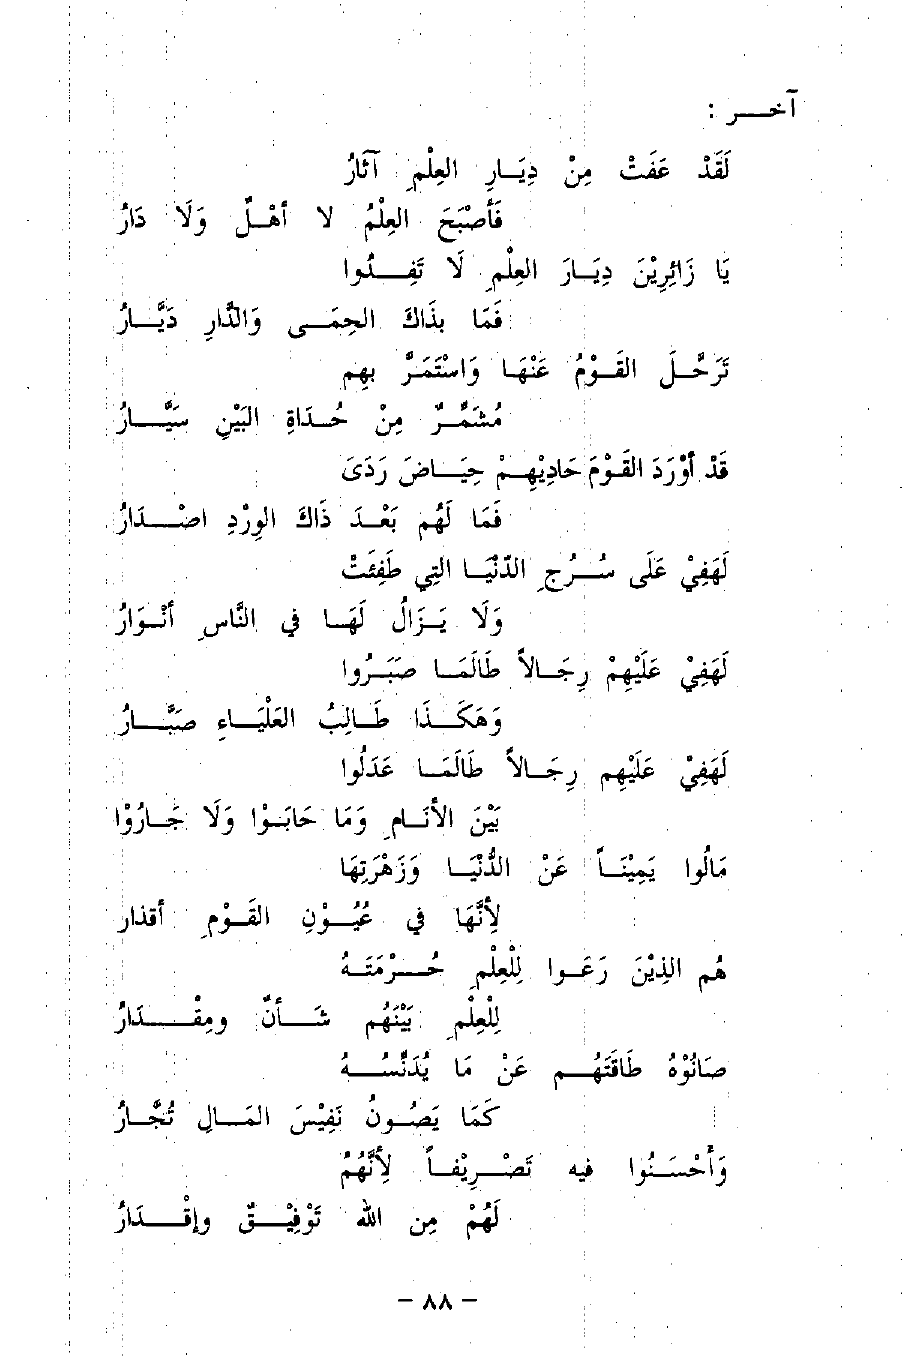 آخــر :
لَقَدْ عَفَتْ مِنْ دِيَـارِ العِلْمِ آثَارُ
فَأَصْبَحَ العِلْمُ لا أهْـلٌ وَلَا دَارُ
يَا زَائِرِيْنَ دِيَـارَ العِلْمِ لَا تَفِـدُوا
فَمَا بذَاكَ الحِمَـى وَالدَّارِ دَيَّـارُ
تَرَحَّـلَ القَـوْمُ عَنْهَا وَاسْتَمَرَّ بهِم
مُشَمِّـرٌ مِنْ حُـدَاةِ البَيْنِ سَيَّـارُ
قَدْ أوْرَدَ القَـوْمَ حَادِيْهِـمْ حِيَـاضَ رَدَىً
فَمَا لَهُم بَعْـدَ ذَاكَ الوِرْدِ اصْـدَارُ
لَهَفِيْ عَلَى سُـرُجِ الدّنْيَـا التِي طَفِئَتْ
وَلَا يَـزَالُ لَهَـا في النَّاسِ أنْـوَارُ
لَهَفِيْ عَلَيْهِمْ رِجَـالاً طَالَمَـا صَبَـرُوا
وَهَكَـذَا طَـالِبُ العَلْيَـاءِ صَبَّـارُ
لَهَفِيْ عَلَيْهِم رِجَـالاً طَالَمَـا عَدَلُوا
بَيْنَ الأنَـامِ وَمَا حَابَـوْا وَلَا جَـارُوْا
مَالُوا يَمِيْنَـاً عَنْ الدُّنْيَـا وَزَهْرَتِهَا
لِأنَّهَا في عُيُـوْنِ القَـوْمِ أقذار
هُم الذِيْنَ رَعَـوا لِلْعِلْمِ حُـرْمَتَـهُ
لِلْعِلْمِ بَيْنَهُم شَـأنٌ ومِقْـدَارُ
صَانُوْهُ طَاقَتَهُـم عَنْ مَا يُدَنِّسُـهُ
كَمَا يَصُـونُ نَفِيْسَ المَـالِ تُجَّـارُ
وَأَحْسَـنُوا فيه تَصْـرِيْفـاً لِأنَّهُمُ
لَهُمْ مِن الله تَوْفِيْـقٌ وإقْـدَارُ
– ٨٨ –